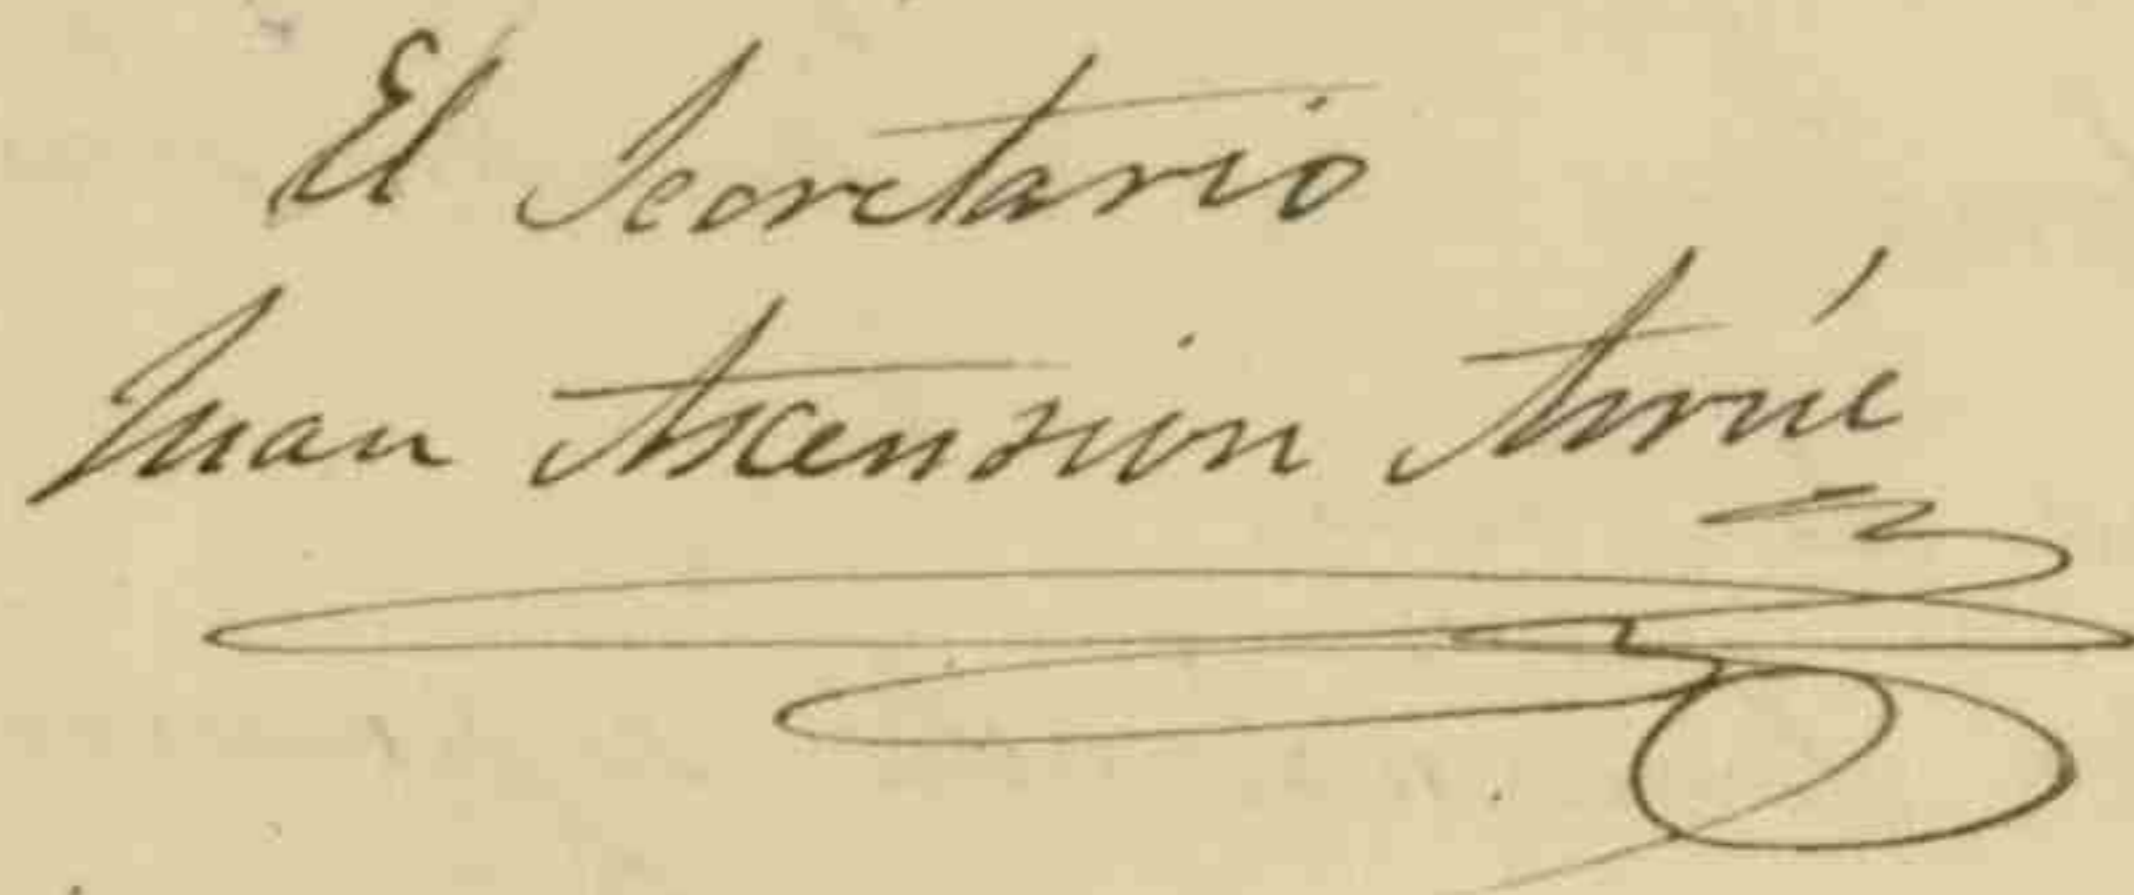 El Secretario
Juan Ascension